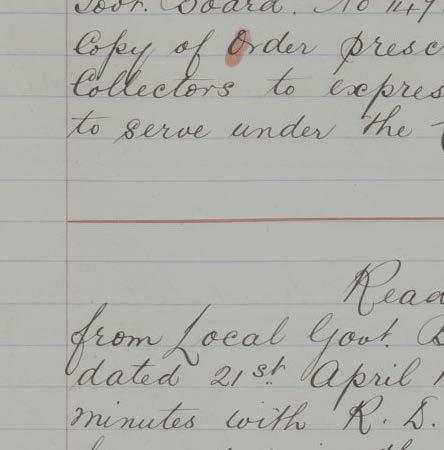 Govt. Board. No
Copy of Order presc
Collectors to expres
to serve under the
Read
from Local Govt. B
dated 21st April 1
minutes with R. D.